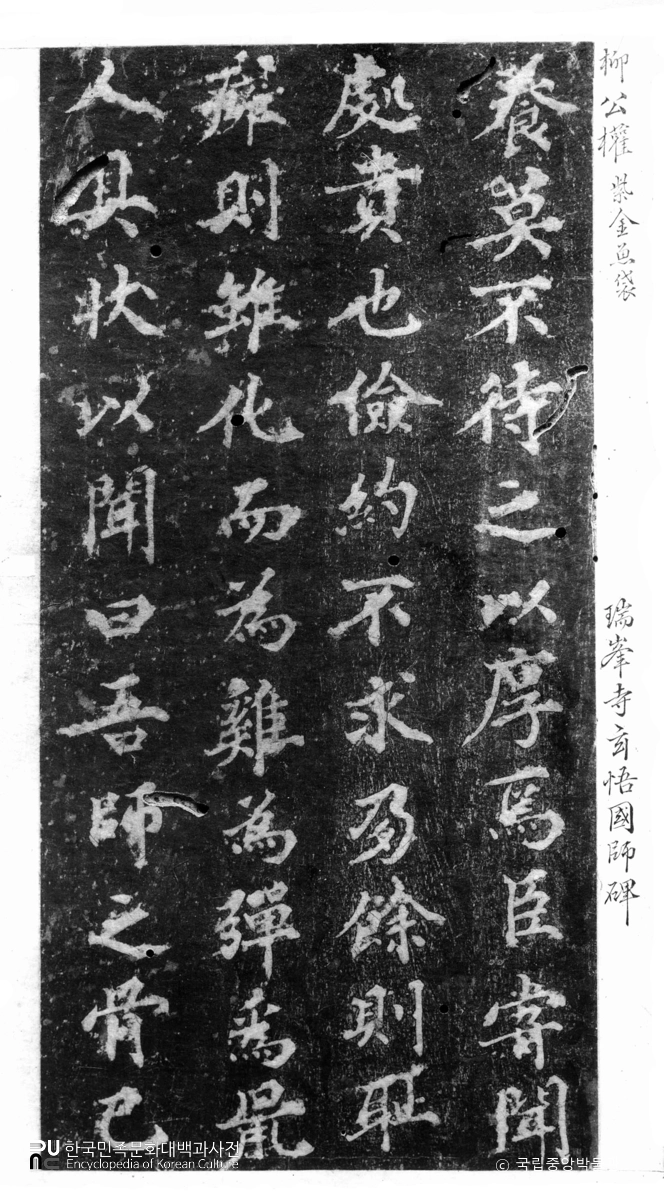 柳公權 紫金魚袋 瑞峯寺玄悟國師碑
養莫不待之以厚焉臣聞
處貴也儉約不求夛餘則耻
癖則雖化而為雞為彈為鼠
人具状以聞曰吾師之骨已
한국민족문화대백과사전
Encyclopedia of Korean Culture
© 국립중앙박물